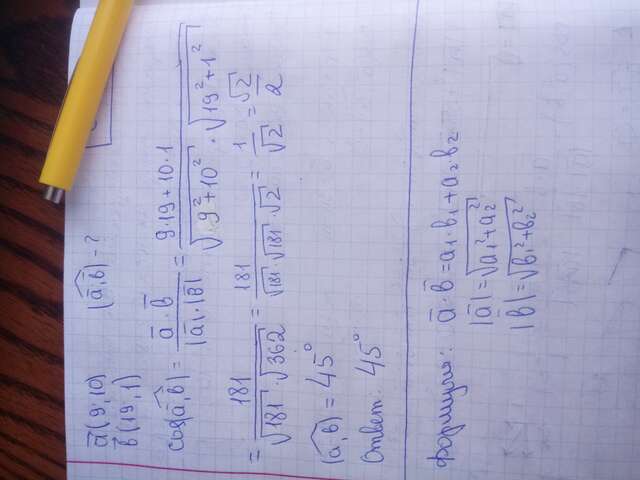 a̅(9; 10)  |a̅,b̅|-?
b̅(19; 1)
cos(a̅,b̅) = a̅ · b̅ / |a̅|·|b̅| = 9·19 + 10·1 / √9²+10² · √19²+1² =
= 181 / √181 · √362 = 181 / √181 · √181 · √2 = 1/√2 = √2/2
(a̅,b̅) = 45°
Ответ: 45°
Формулы: a̅ · b̅ = a₁·b₁+a₂·b₂
|a̅| = √a₁²+a₂²
|b̅| = √b₁²+b₂²